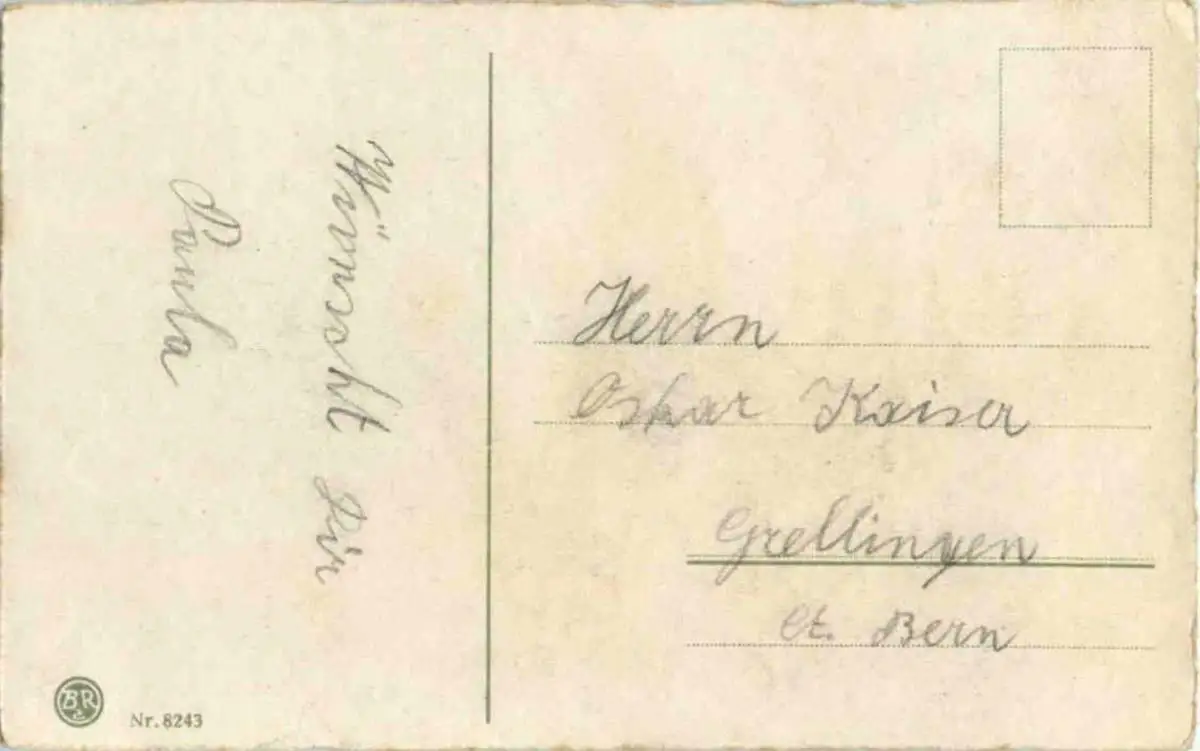 Wünscht Dir
Paula
Herrn
Oskar Kaiser
Grellingen
Ct. Bern
BR
Nr. 8243